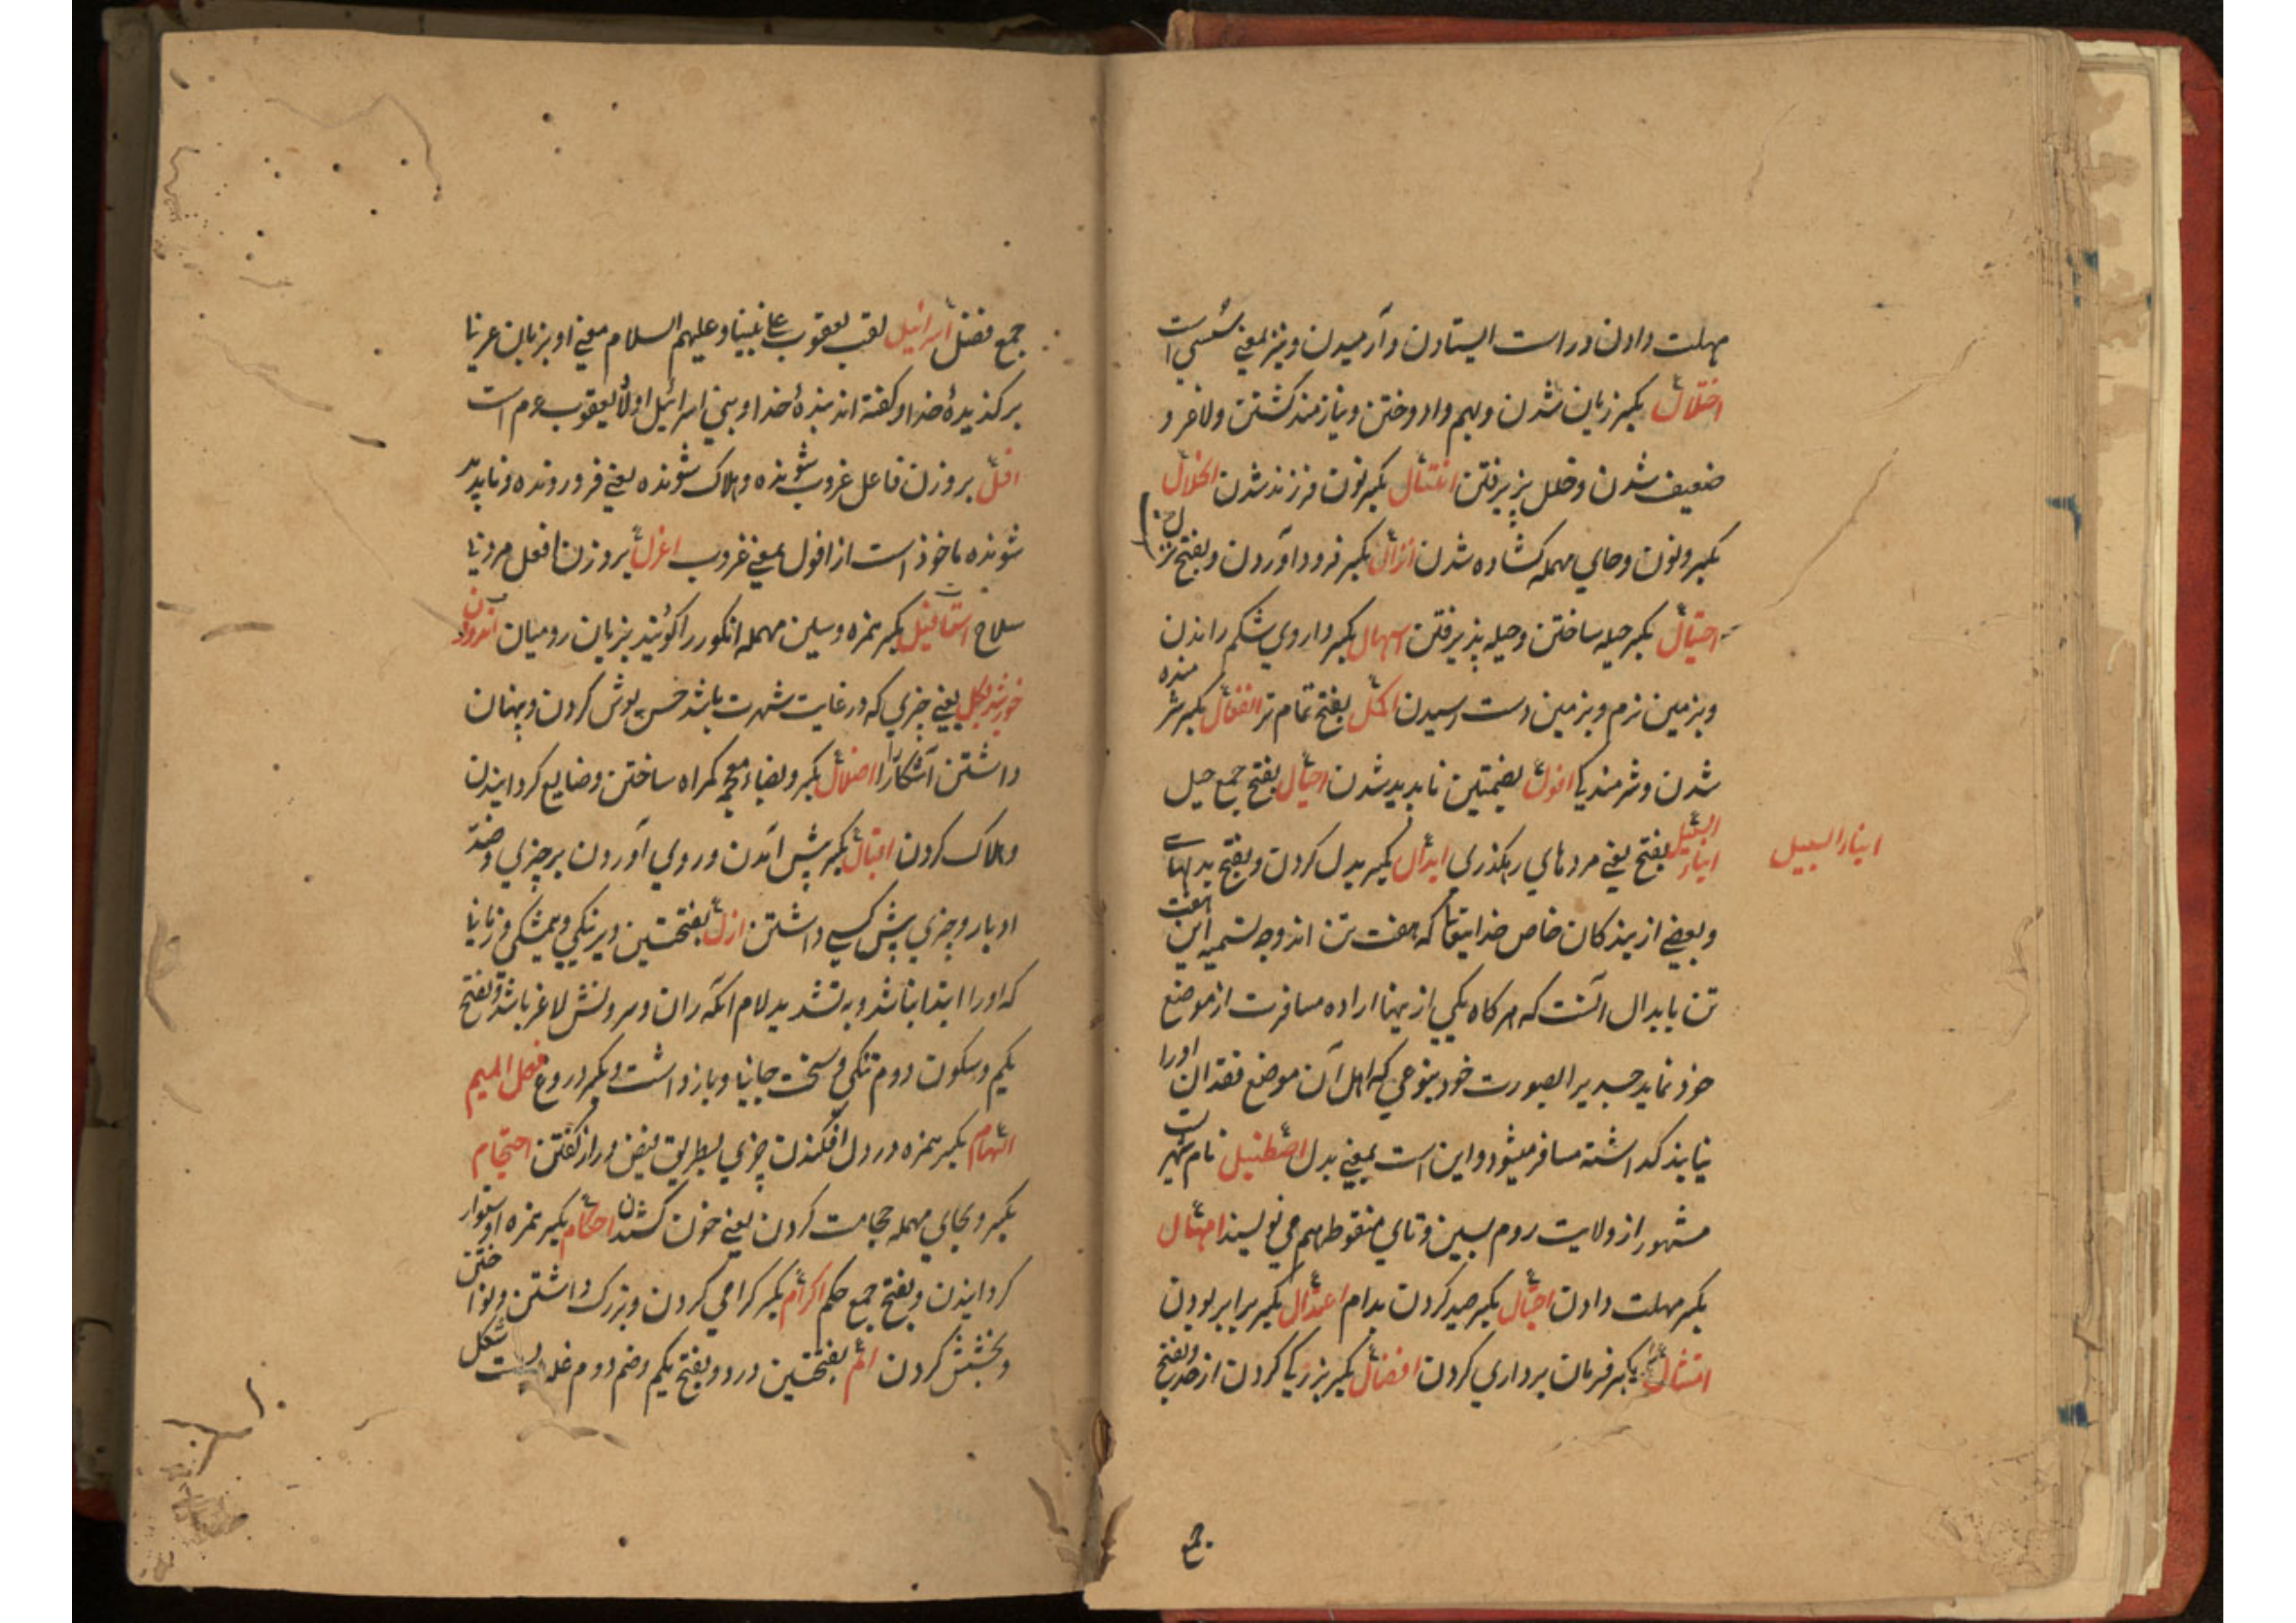 مهلت دادن و راست ایستادن و آرمیدن و نیز بمعنی سستی است
اختلال بکسر زیان شدن و بهم وا دوختن و نیازمند کشتن و لاغر و
ضعیف شدن و خلل پزیرفتن انتسال بکسر نون فرزند شدن انحلال
بکسر و نون و حای مهمله کشاده شدن انزال بکسر فرود آوردن و بفتح
احتیال بکسر حیله ساختن و حیله پذیرفتن اسهال بکسر داروی شکم راندن
و بزمین نرم و بزمین دست رسیدن اکمل بفتح تمام تر انفعال بکسر شرمنده
شدن و شرمندکی افول بضمتین ناپدید شدن احیال بفتح جمع حیل
ابناء السبیل بفتح یعنی مردمای رهکذری ابدال بکسر بدل کردن و بفتح بدلها
ابناء السبیل
و بعضی از بندکان خاص خدایتعا که هفت تن اند وجه تسمیه این هفت
تن بابدال آنست که هرکاه یکی از اینها اراده مسافرت از موضع
خود نماید جسد یرا بصورت خود بنوعی که اهل آن موضع فقدان اورا
نیابند کداشته مسافر میشود و این است بمعنی بدل اصطنبیل نام شهریست
مشهور از ولایت روم بسین و تای منقوطه هم می نویسند امهال
بکسر مهلت دادن احبال بکسر صید کردن بدام اعتدال بکسر برابر بودن
امتثال بکسر فرمان برداری کردن افضال بکسر بزرکی کردن از حد و بفتح
جمع
جمع فضل اسرائیل لقب یعقوب علی نبینا و علیهم السلام معنی او بزبان عربی
برکذیدهٔ خدا و کفته اند بندهٔ خدا و بنی اسرائیل اولاد یعقوب عم است
افل بر وزن فاعل غروب شونده و هلاک شونده یعنی فرو رونده و ناپدید
شونده ماخوذ است از افول بمعنی غروب اعزل بر وزن افعل مرد بی
سلاح استافیل بکسر همزه و سین مهمله انکور را کویند بزبان رومیان اندودن
خورشید بکل یعنی چیزی که در غایت شهرت باشد خس پوش کردن و پنهان
داشتن آشکارا اضلال بکسر و بضاء معجمه کمراه ساختن و ضایع کردانیدن
و هلاک کردن اقبال بکسر پیش آمدن و روی آوردن بر چیزی و ضد
ادبار و چیزی پیش کسی داشتن ازل بفتحتین دیرنکی و همیشکی و زمانی
که اورا ابتدا نباشد و به تشدید لام آنکه ران و سرونش لاغر باشد و بفتح
یکم و سکون دوم تنکی و سختی و باز داشت و بکسر دروغ فصل المیم
الهام بکسر همزه در دل افکندن چیزی بطریق فیض و راز کفتن احتجام
بکسر و بحای مهمله حجامت کردن یعنی خون کشیدن احکام بکسر همزه استوار
کردانیدن و بفتح جمع حکم اکرام بکسر کرامی کردن و بزرک داشتن و نواختن
و بخشش کردن الم بفتحتین درد و بفتح یکم و ضم دوم غله